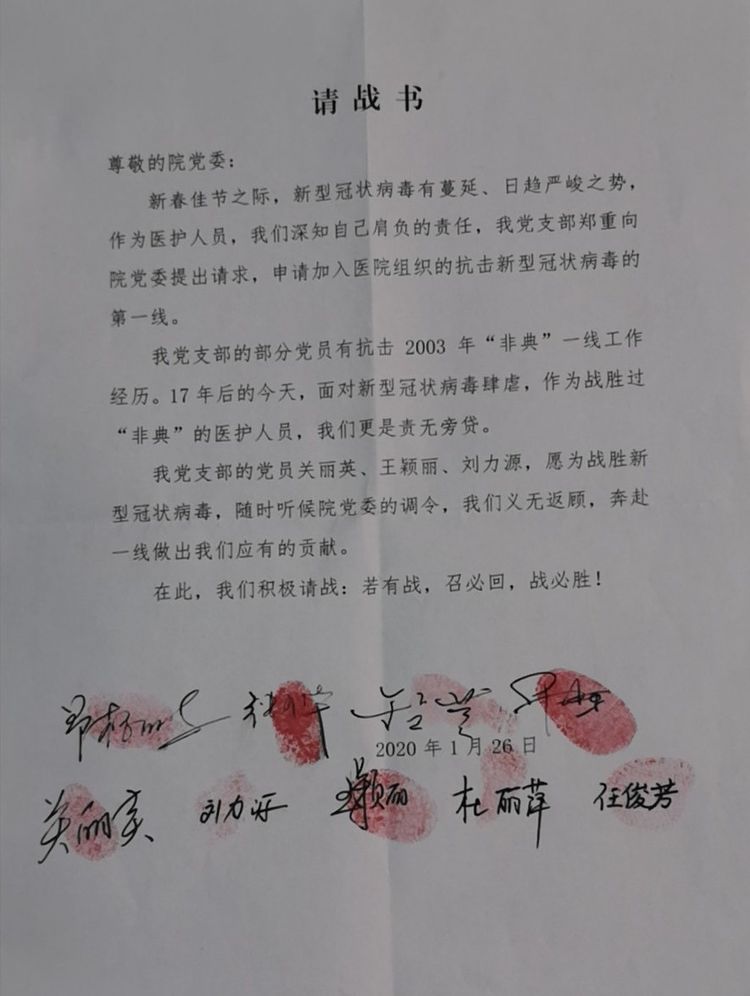 请战书
尊敬的院党委：
新春佳节之际，新型冠状病毒有蔓延、日趋严峻之势，
作为医护人员，我们深知自己肩负的责任，我党支部郑重向
院党委提出请求，申请加入医院组织的抗击新型冠状病毒的
第一线。
我党支部的部分党员有抗击 2003 年“非典”一线工作
经历。17 年后的今天，面对新型冠状病毒肆虐，作为战胜过
“非典”的医护人员，我们更是责无旁贷。
我党支部的党员关丽英、王颖丽、刘力源，愿为战胜新
型冠状病毒，随时听候院党委的调令，我们义无返顾，奔赴
一线做出我们应有的贡献。
在此，我们积极请战：若有战，召必回，战必胜！
2020 年 1 月 26 日
关丽英 刘力源 王颖丽 杜丽萍 任俊芳